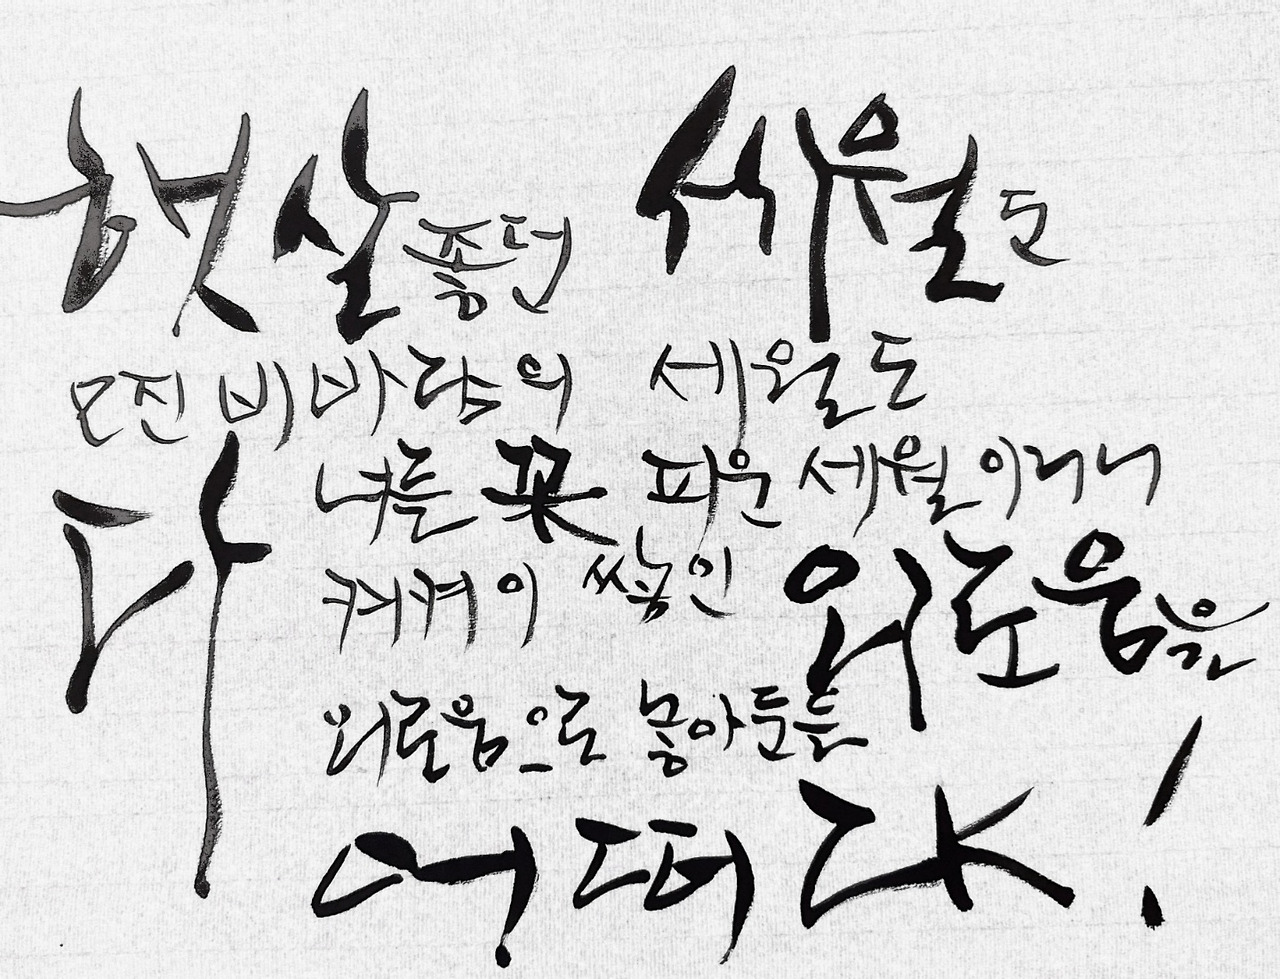 햇살 좋던 세월도
모진 비바람의 세월도
다 너를 꽃 피운 세월이러니
켜켜이 쌓인 외로움을
외로움으로 놓아둔들
어떠랴!